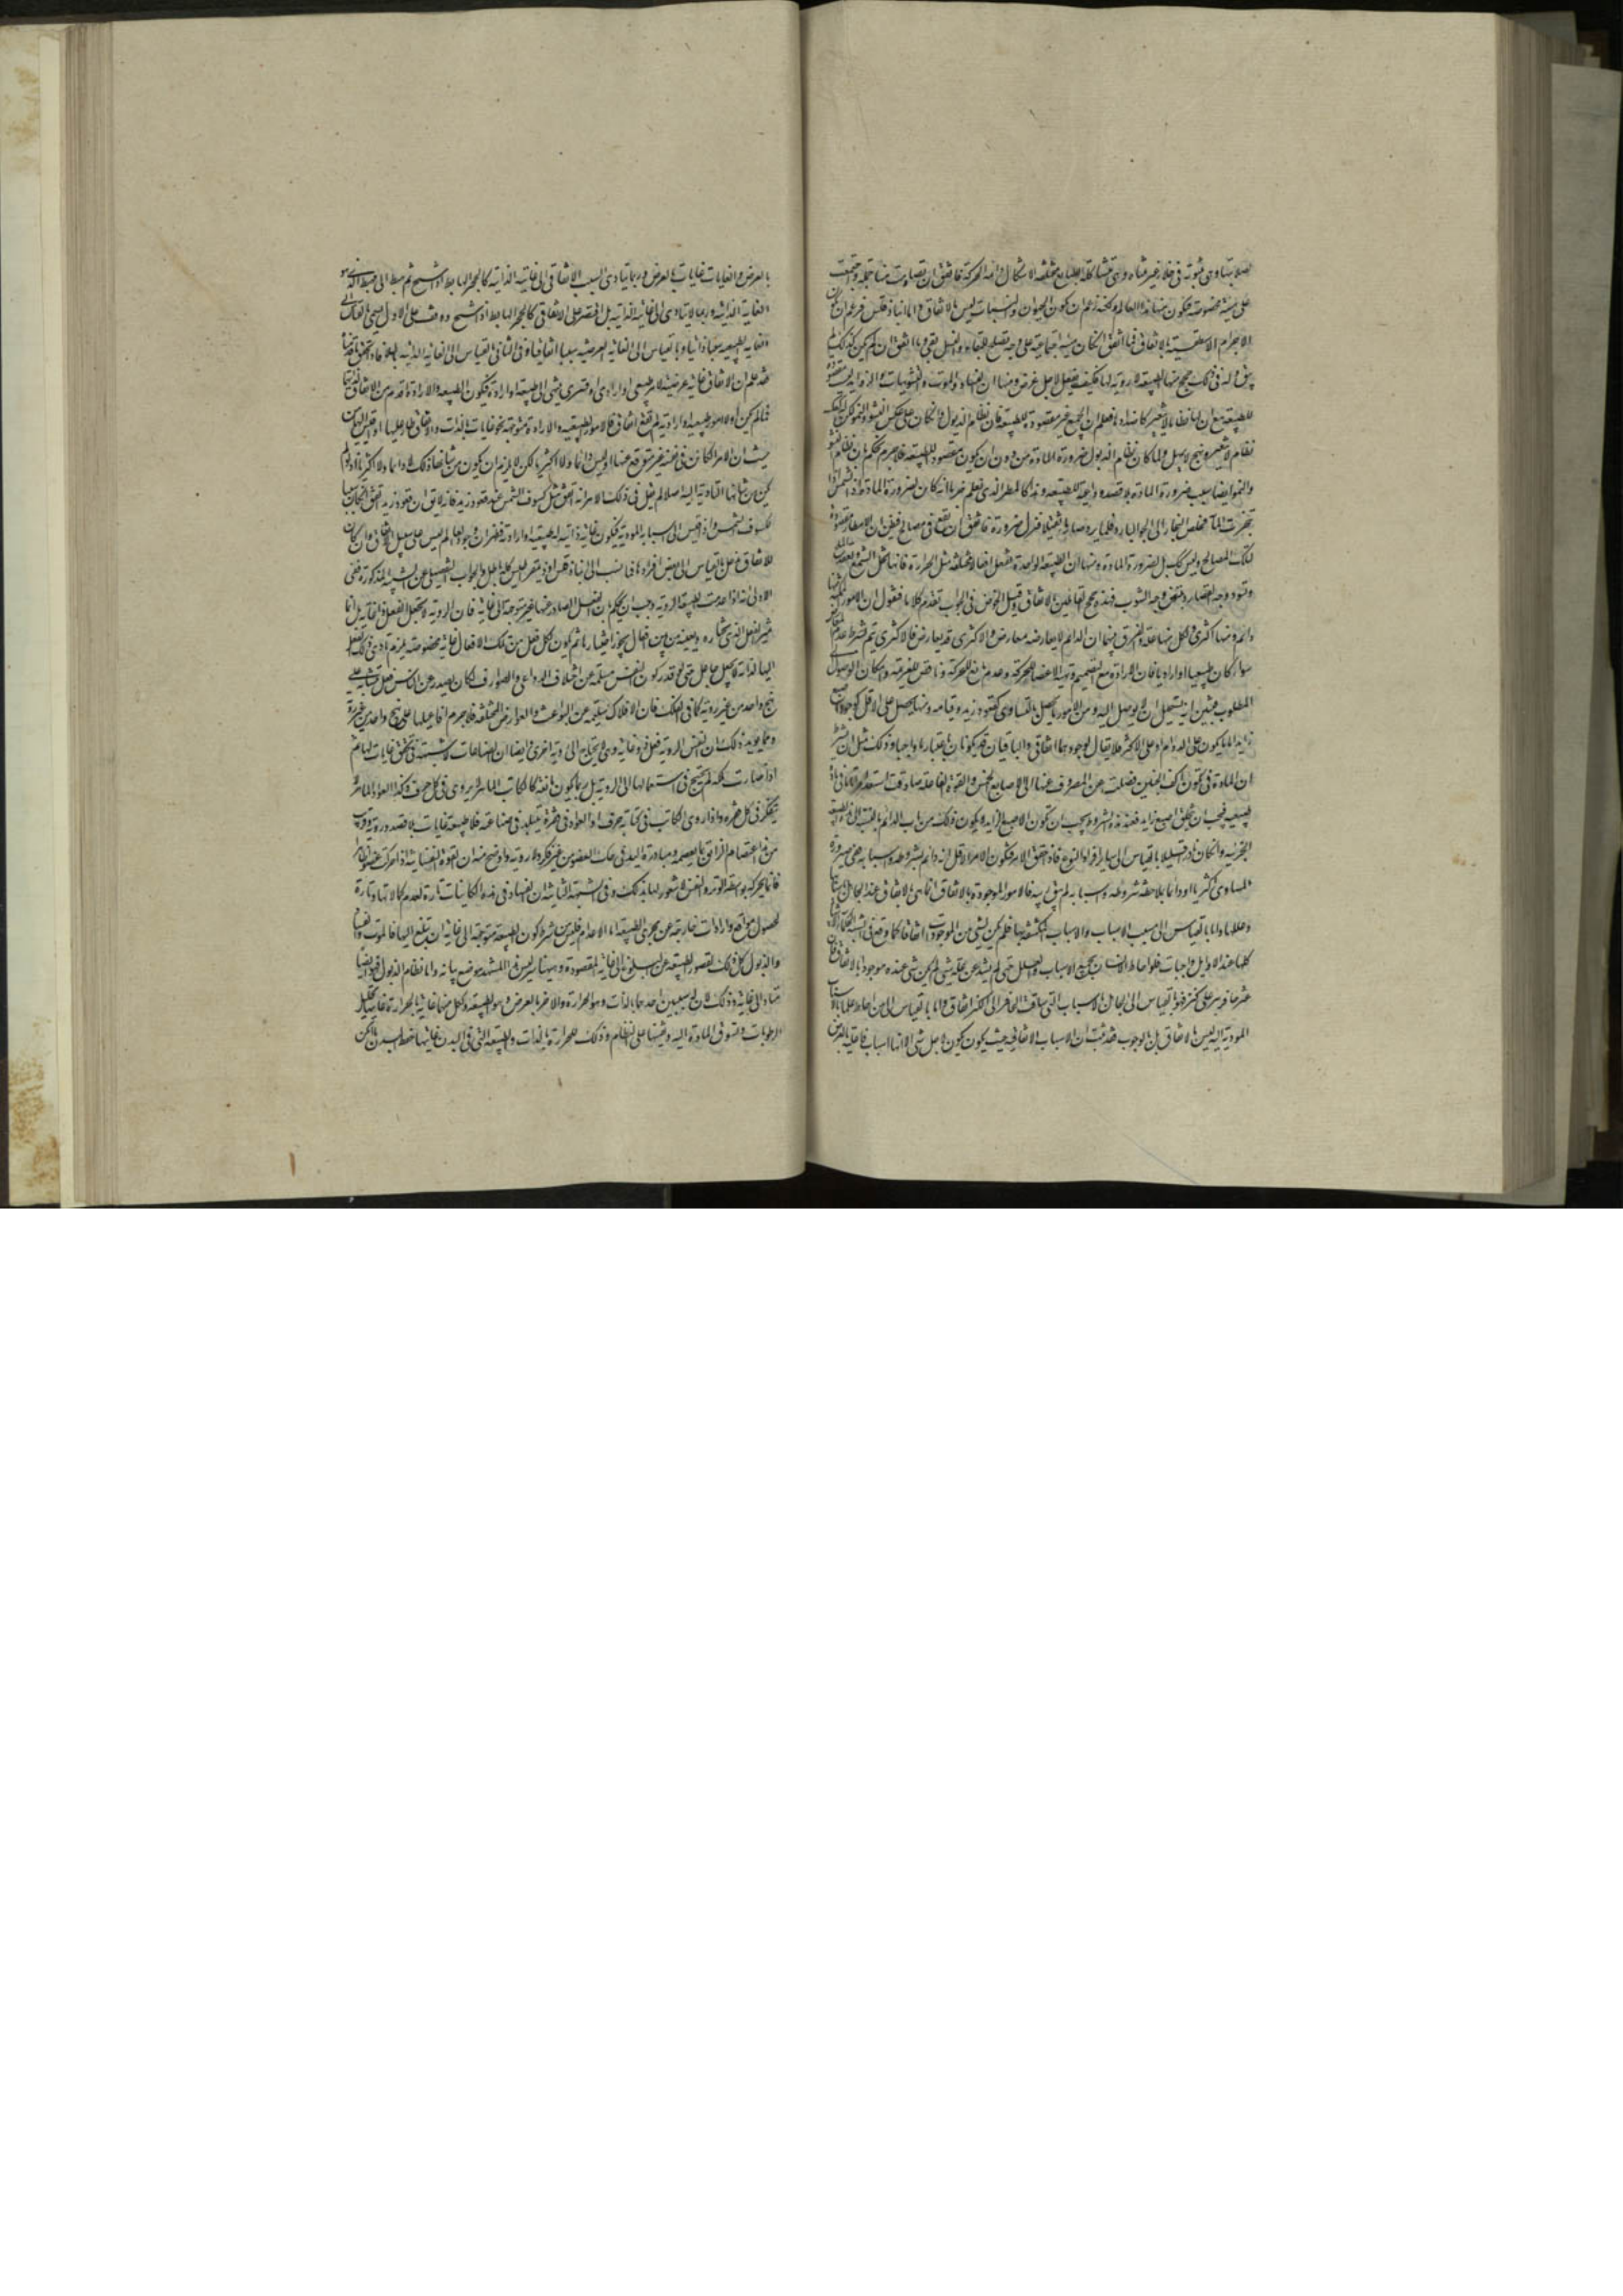 لصلابتها وهي مبثوثة في خلاء غير متناه وهي متشاكلة الطبايع مختلفة الاشكال دائمة الحركة فاتفق ان تصادمت منها جملة واجتمعت
على هيئة مخصوصة فتكون منها هذا العالم ولكنه زعم ان تكون الحيوان والنبات ليس بالاتفاق واما انباذقلس فزعم ان تكون
الاجرام الاسطقسية بالاتفاق فما اتفق ان كان هيئة اجتماعية على وجه يصلح للبقاء والنسل بقي وما اتفق ان لم يكن كذلك لم
يبق وله في ذلك حجج منها الطبيعة لا روية لها فكيف يفعل لاجل غرض ومنها ان الفساد والموت والتشويهات والزوايد ليست مقصودة
للطبيعة مع ان لها نظاما لا يتغير كاضدادها فعلم ان الجميع غير مقصودة للطبيعة فان نظام الذبول وان كان على عكس النشو والنمو لكن له كعكسه
نظام لا يتغير ونهج لا يمهل ولما كان نظام الذبول ضرورة المادة من دون ان يكون مقصودا للطبيعة فلا جرم نحكم بان نظام النشو
والنمو ايضا بسبب ضرورة المادة بلا قصد وداعية للطبيعة وهذا كالمطر الذي يعلم جزما انه كان لضرورة المادة اذ الشمس اذا
بخرت الماء فخلص البخار الى الجو البارد فلما برد صار ماء ثقيلا فنزل ضرورة فاتفق ان يقع في مصالح فيظن ان الامطار مقصودة
لتلك المصالح وليس كذلك بل لضرورة المادة ومنها ان الطبيعة الواحدة تفعل افعالا مختلفة مثل الحرارة فانها تحل الشمع وتعقد الملح
وتسود وجه القصار وتبيض وجه الثوب فهذه حجج القائلين بالاتفاق وقبل الخوض في الجواب نقدم كلاما فنقول ان الامور الممكنة منها
دائم ومنها اكثري ولكل منها علة والفرق بينهما ان الدايم لا يعارضه معارض والاكثري قد يعارض فالاكثري يتم بشرط عدم المعارض
سواء كان طبيعيا او اراديا فان الارادة مع التصميم وتهيؤ الاعضاء للحركة وعدم مانع للحركة وناقض للعزيمة وامكان الوصول الى
المطلوب فبين انه يستحيل ان لا يوصل اليه ومن الامور ما يحصل بالتساوي كقعود زيد وقيامه ومنها ما يحصل على الاقل كوجود اصبع
زايد اما ما يكون على الدوام او على الاكثر فلا يقال لوجودهما اتفاقي والباقيان قد يكونان باعتبار ما واجبا وذلك مثل ان يشترط
ان المادة في تكون كف الجنين فضلت عن المصروف عنها الى الاصابع الخمس والقوة الفاعلة صادفت استعدادا تاما في مادة
طبيعية فيجب ان يتخلق اصبع زايد فعند هذه الشروط يجب ان تكون الاصبع الزايد ويكون ذلك من باب الدائم بالنسبة الى هذه الطبيعة
الجزئية وان كان نادرا قليلا بالقياس الى ساير افراد النوع فاذا حقق الامر فكون الامر الاقلي انه دائم بشروطه واسبابه ففي صيرورة
المساوي اكثريا او دائما بملاحظة شروطه واسبابه لم يبق ريبة فالامور الموجودة بالاتفاق انما هي بالاتفاق عند الجاهل باسبابها
وعللها واما بالقياس الى مسبب الاسباب والاسباب المكتنفة بها فلم يكن شيء من الموجودات اتفاقا كما وقع في السنة الحكماء الاشياء
كلها عند الاوايل واجبات فلو احاط الانسان بجميع الاسباب والعلل حتى لم يشذ عن علمه شيء لم يكن شيء عنده موجودا بالاتفاق فان
عثر حافر بير على كنز فهو بالقياس الى الجاهل بالاسباب التي ساقت الحافر الى الكنز اتفاق واما بالقياس الى من احاط علما بالاسباب
المودية اليه ليس بالاتفاق بل بالوجوب فقد ثبت ان الاسباب الاتفاقية حيث يكون يكون لاجل شيء الا انها اسباب فاعلية بالعرض
بالعرض والغايات غايات بالعرض وربما يتادى السبب الاتفاقي الى غايته الذاتية كالحجر الهابط اذا شج ثم هبط الى مهبطه الذي هو
الغاية الذاتية وربما لا يتادى الى غايته الذاتية بل اقتصر على الاتفاقي كالحجر الهابط اذا شج ووقف فعلى الاول يسمى بالقياس الى
الغاية الطبيعية سببا ذاتيا وبالقياس الى الغاية العرضية سببا اتفاقيا وفي الثاني بالقياس الى الغاية الذاتية باطلا فاذا تحقق ما قدمناه
فقد علم ان الاتفاق غاية عرضية لامر طبيعي او ارادي او قسري ينتهي الى طبيعة او ارادة فيكون الطبيعة والارادة اقدم من الاتفاق لذاتيهما
فما لم يكن اولا امور طبيعية او ارادية لم يقع اتفاق فالامور الطبيعية والارادية متوجهة نحو غايات بالذات والاتفاق طار عليها اذا قيس اليها من
حيث ان الامر الكائن في نفسه غير متوقع عنها اذ ليس دائما ولا اكثريا لكن يلزم ان يكون من شانها ذلك لا دائما ولا اكثريا اذ لو لم
يكن من شانها التادية اليه اصلا لم يقل في ذلك الامر انه اتفق مثل كسوف الشمس عند قعود زيد فانه لا يقال ان قعود زيد اتفق ان كان سببا
لكسوف الشمس واذا قيس الى اسبابه المودية فيكون غاية ذاتية له طبيعية او ارادية فظهر ان وجود العالم ليس على سبيل الاتفاق وان كان
للاتفاق مدخل بالقياس الى بعض افراده فما نسب الى انباذقلس وذيمقراطيس كله باطل والجواب التفصيلي عن الشبه المذكورة ففي
الاولى انه اذا عدمت الطبيعة الروية وجب ان يحكم بان الفعل الصادر عنها غير متوجه الى غاية فان الروية لا تجعل الفعل ذا غاية بل انما
تميز الفعل الذي يختاره ويعينه من بين افعال يجوز اختيارها ثم يكون لكل فعل من تلك الافعال غاية مخصوصة يلزم تادي ذلك الفعل
اليها لذاته لا بجعل جاعل حتى لو قدر كون النفس مسلمة عن اختلاف الدواعي والصوارف لكان يصدر عن الناس فعل متشابه على
نهج واحد من غير روية كما في الفلك فان الافلاك سليمة عن البواعث والعوارض المختلفة فلا جرم افاعيلها على نهج واحد من غير روية
ومما يؤيد ذلك ان نفس الروية فعل ذو غاية وهي لا يحتاج الى روية اخرى وايضا ان الصناعات لا شبهة في تحقق غايات لها ثم
اذا صارت ملكة لم يحتج في استعمالها الى الروية بل ربما يكون مانعة كالكاتب الماهر لا يروي في كل حرف وكذا العواد الماهر لا
يتفكر في كل نقرة واذا روى الكاتب في كتابة حرف او العواد في نقرة يتبلد في صناعته فللطبيعة غايات بلا قصد وروية وقريب
من هذا اعتصام الزالق بما يعصمه ومبادرة اليد في حك العضو من غير فكر ولا روية واوضح منه ان القوة النفسانية اذا حركت عضوا ظاهرا
فانما يحركه بواسطة الوتر والنفس لا شعور لها بذلك وفي الشبهة الثانية ان الفساد في هذه الكاينات تارة لعدم كمالاتها وتارة
لحصول موانع وارادات خارجة عن مجرى الطبيعة اما الاعدام فليس من شرط كون الطبيعة متوجهة الى غاية ان تبلغ اليها فالموت والفساد
والذبول كل ذلك لقصور الطبيعة عن البلوغ الى الغاية المقصودة وههنا سر ليس هذا المشهد موضع بيانه واما نظام الذبول فهو ايضا
متاد الى غاية وذلك لان له سببين احدهما بالذات وهو الحرارة والاخر بالعرض وهو الطبيعة ولكل منهما غاية فالحرارة غايتها تحليل
الرطوبات وتسوق المادة اليه وتفنيها على النظام وذلك للحرارة بالذات والطبيعة التي في البدن غايتها حفظ البدن ما امكن